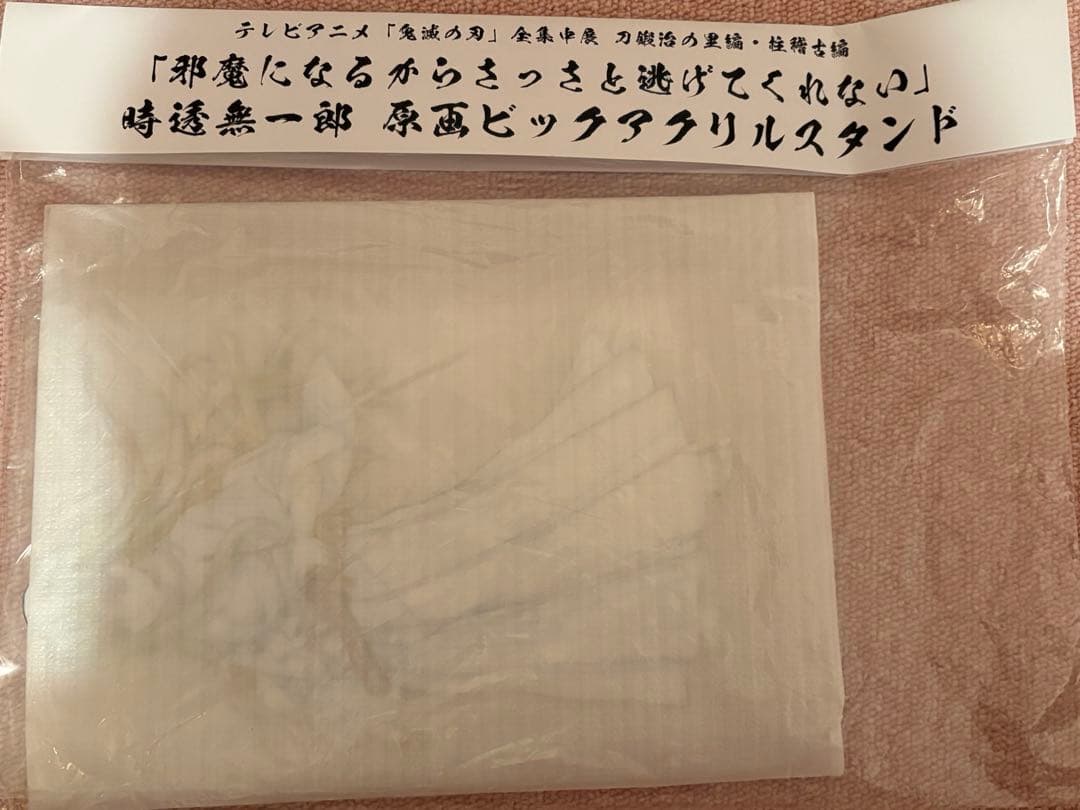 テレビアニメ「鬼滅の刃」全集中展 刀鍛治の里編・柱稽古編
「邪魔になるからさっさと逃げてくれない」
時透無一郎 原画ビックアクリルスタンド